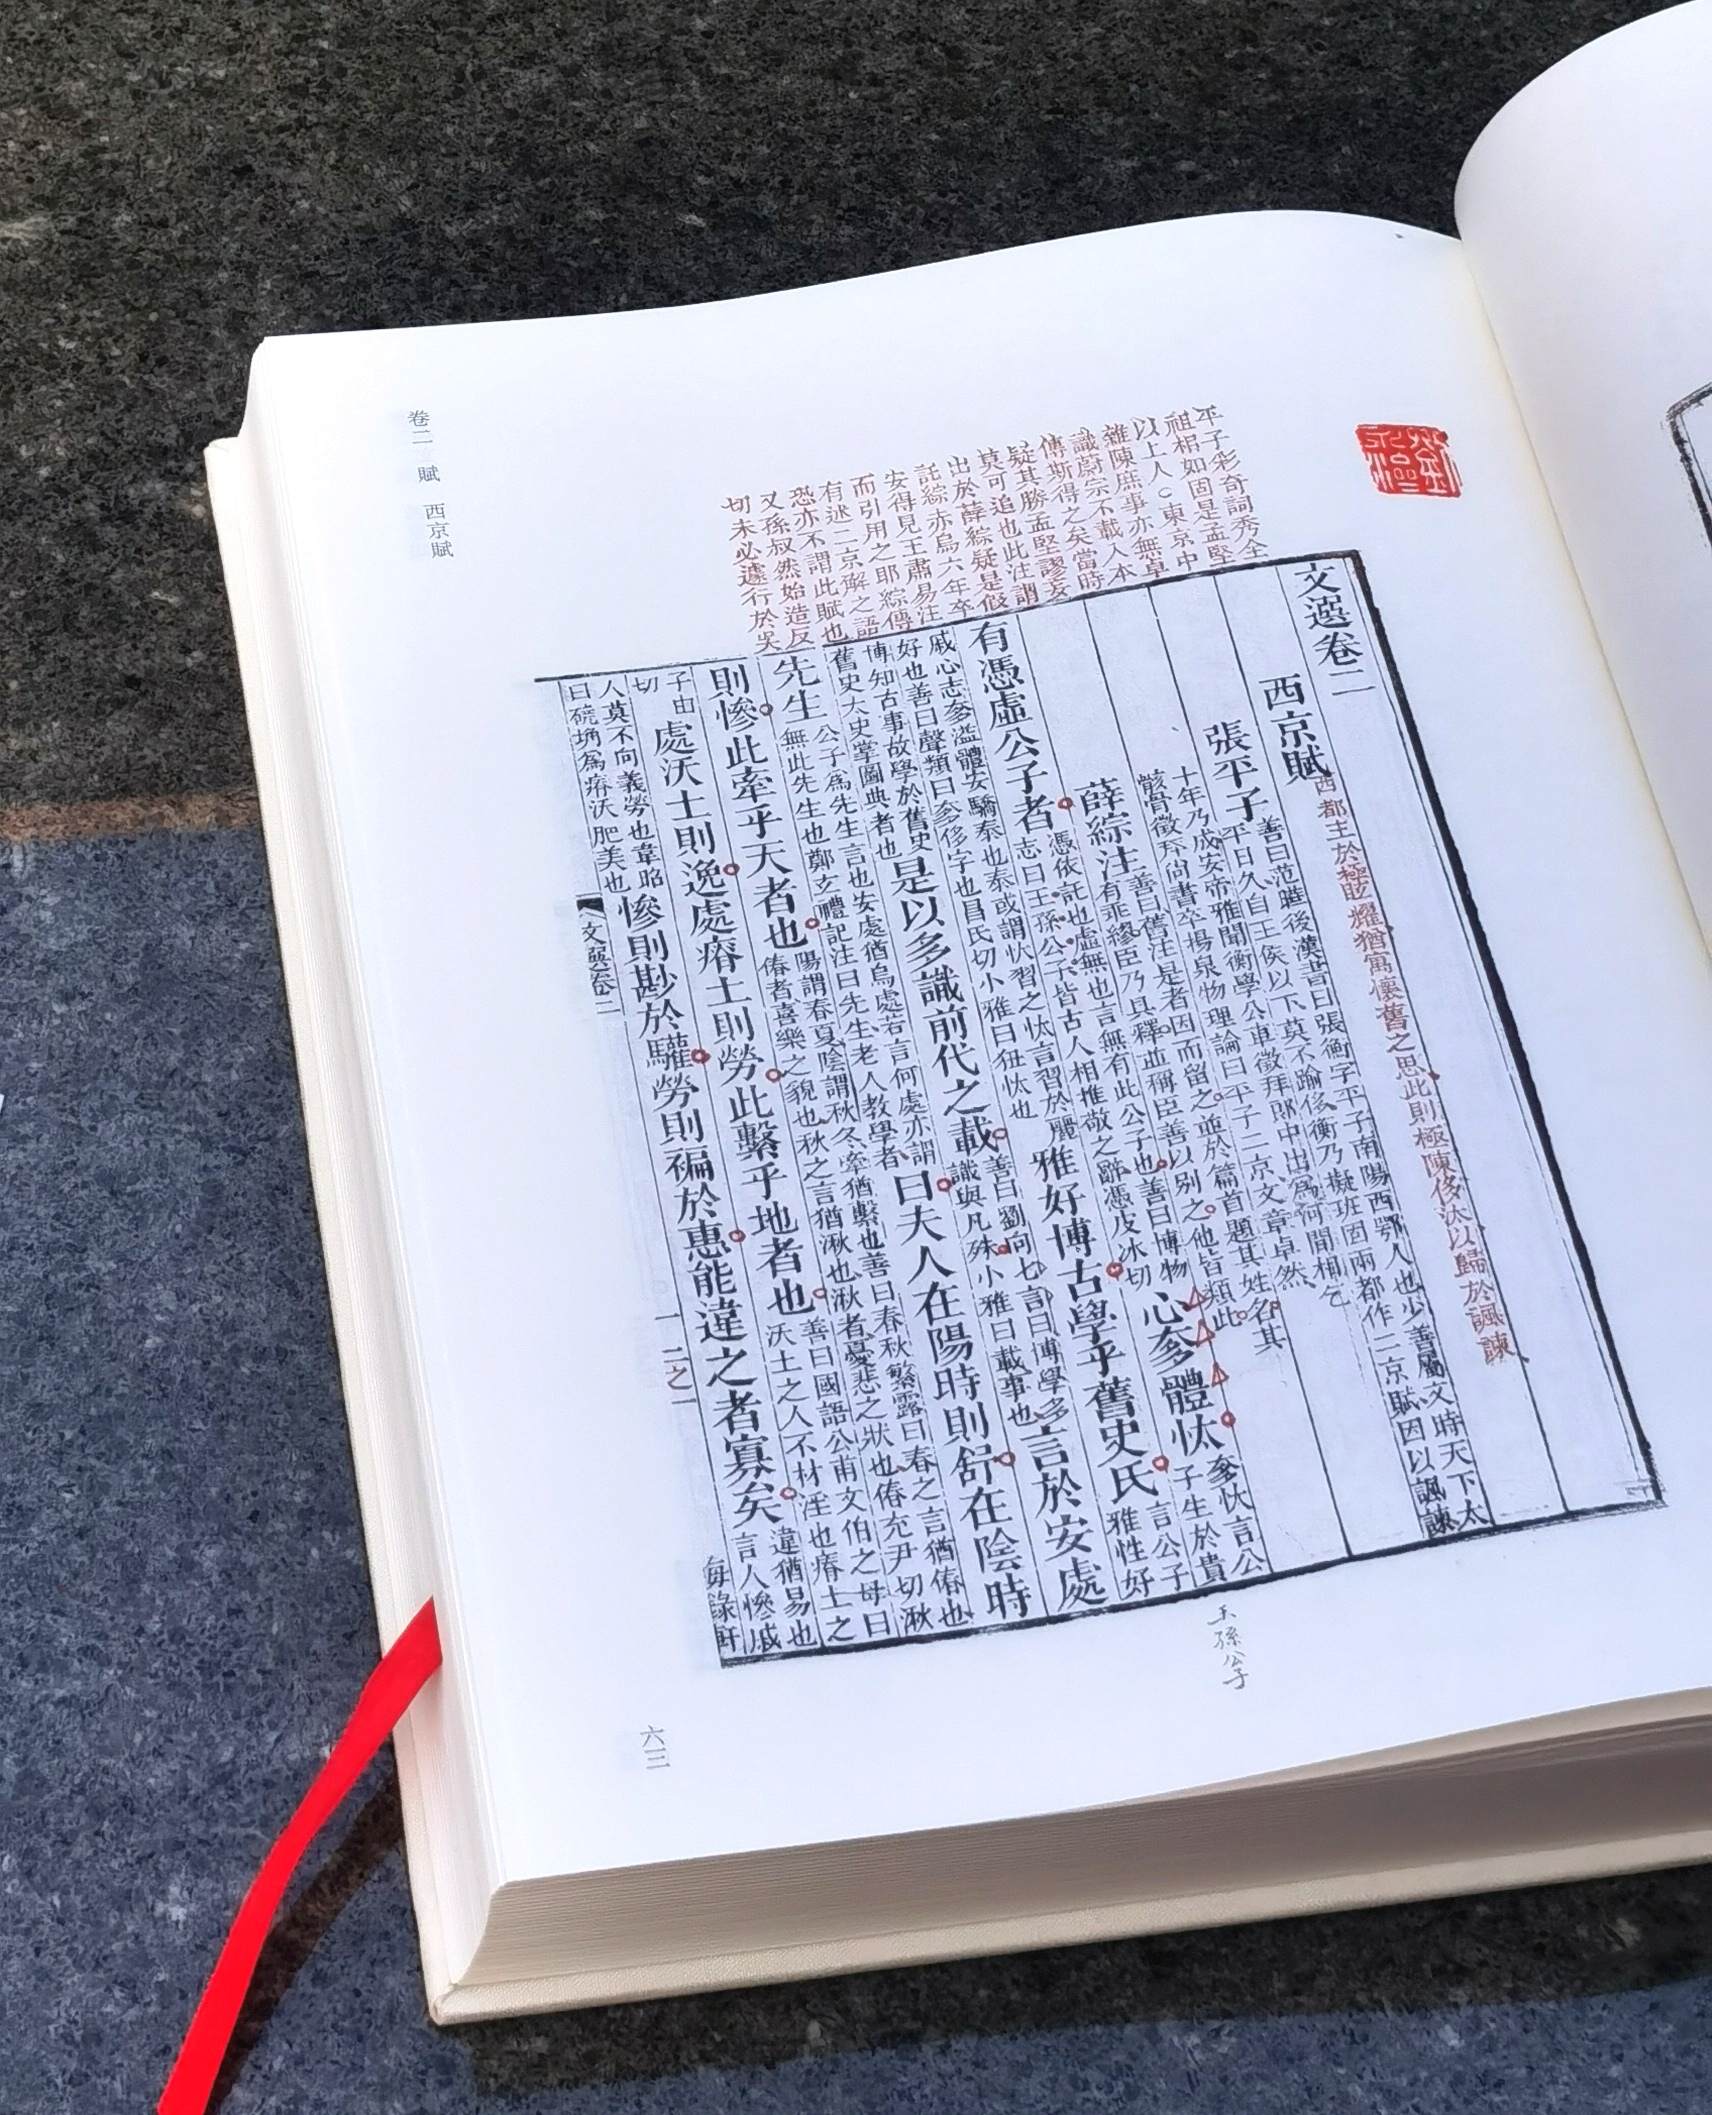 卷二 賦 西京賦
平子彩奇詞秀全
祖相如固是孟堅
以上人。東京中
雜陳庶事亦無卓
識蔚宗不載入本
傳斯得之矣當時
疑其勝孟堅謬妄
莫可追也此注謂
出於薛綜疑是假
託綜赤烏六年卒
安得見王肅易注
而引用之耶綜傳
有述二京解之語
恐亦不謂此賦也
又孫叔然始造反
切未必遽行於吳
文選卷二
西京賦 西都主於極眩耀猶寓懷舊之思此則極陳侈汰以歸於諷諫
張平子 善曰范曄後漢書曰張衡字平子南陽西鄂人也少善屬文時天下太
平日久自王侯以下莫不踰侈衡乃擬班固兩都作二京賦因以諷諫
十年乃成安帝雅聞衡學公車徵拜郎中出爲河間相乞
骸骨徵拜尚書卒揚泉物理論曰平子二京文章卓然
薛綜注 善曰舊注是者因而留之並於篇首題其姓名其
有乖繆臣乃具釋並稱臣善以別之他皆類此
有憑虛公子者 憑依託也虛無也言無有此公子也善曰博物
志曰王孫公子皆古人相推敬之辭憑皮冰切
心奓體忲 奓忲言公
子生於貴
戚心志奓溢體安驕泰也泰或謂忲習之忲言習於麗
好也善曰聲類曰奓侈字也昌氏切小雅曰狃忲也
雅好博古學乎舊史氏 言公子
雅性好
博知古事故學於舊史
舊史太史掌圖典者也
是以多識前代之載 善曰劉向七言曰博學多
識與凡殊小雅曰載事也
言於安處
先生 公子爲先生言也安處猶烏處若言何處亦謂
無此先生也鄭玄禮記注曰先生老人教學者
曰夫人在陽時則舒在陰時
則慘此牽乎天者也 陽謂春夏陰謂秋冬牽猶繫也善曰春秋繁露曰春之言猶偆也
偆者喜樂之貌也秋之言猶湫也湫者憂悲之狀也偆充尹切湫
子由
切
處沃土則逸處瘠土則勞此繫乎地者也 善曰國語公甫文伯之母曰
沃土之人不材淫也瘠土之
人莫不向義勞也韋昭
曰磽埆爲瘠沃肥美也
慘則尠於驩勞則褊於惠能違之者寡矣 違猶易也
言人慘慼
文選卷二
一 二之一
海錄軒
王孫公子
六三